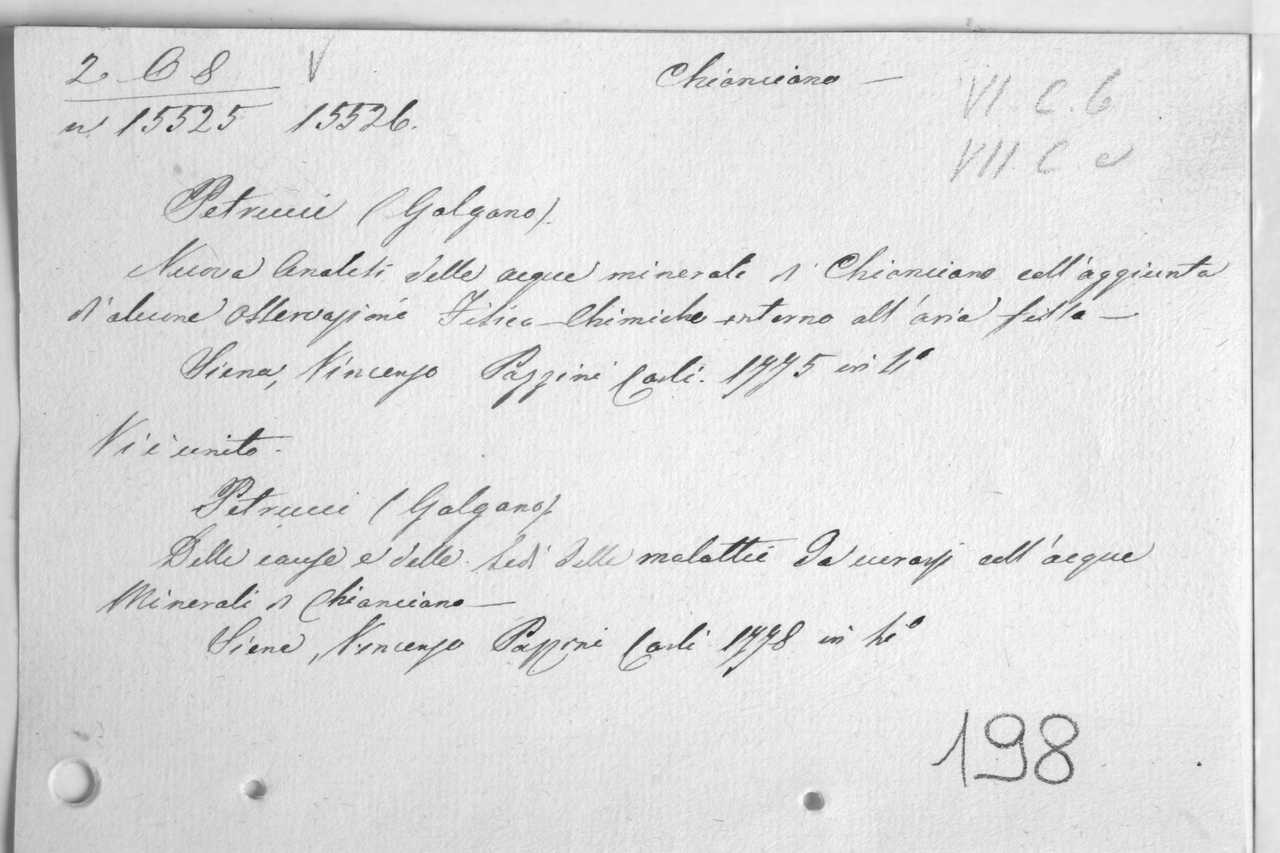 2. C 8 V
Chianciano —
VI. C. 6
n. 15525 15526.
VII C e
Petrucci (Galgano).
Nuova Analisi delle acque minerali di Chianciano coll'aggiunta
d'alcune Osservazioni Fisico-Chimiche intorno all'aria fissa —
Siena, Vincenzo Pazzini Carli. 1775 in 4°
Vi è unito.
Petrucci (Galgano).
Delle cause e delle sedi delle malattie da curarsi coll'acque
Minerali di Chianciano —
Siena, Vincenzo Pazzini Carli 1778 in 4°
198